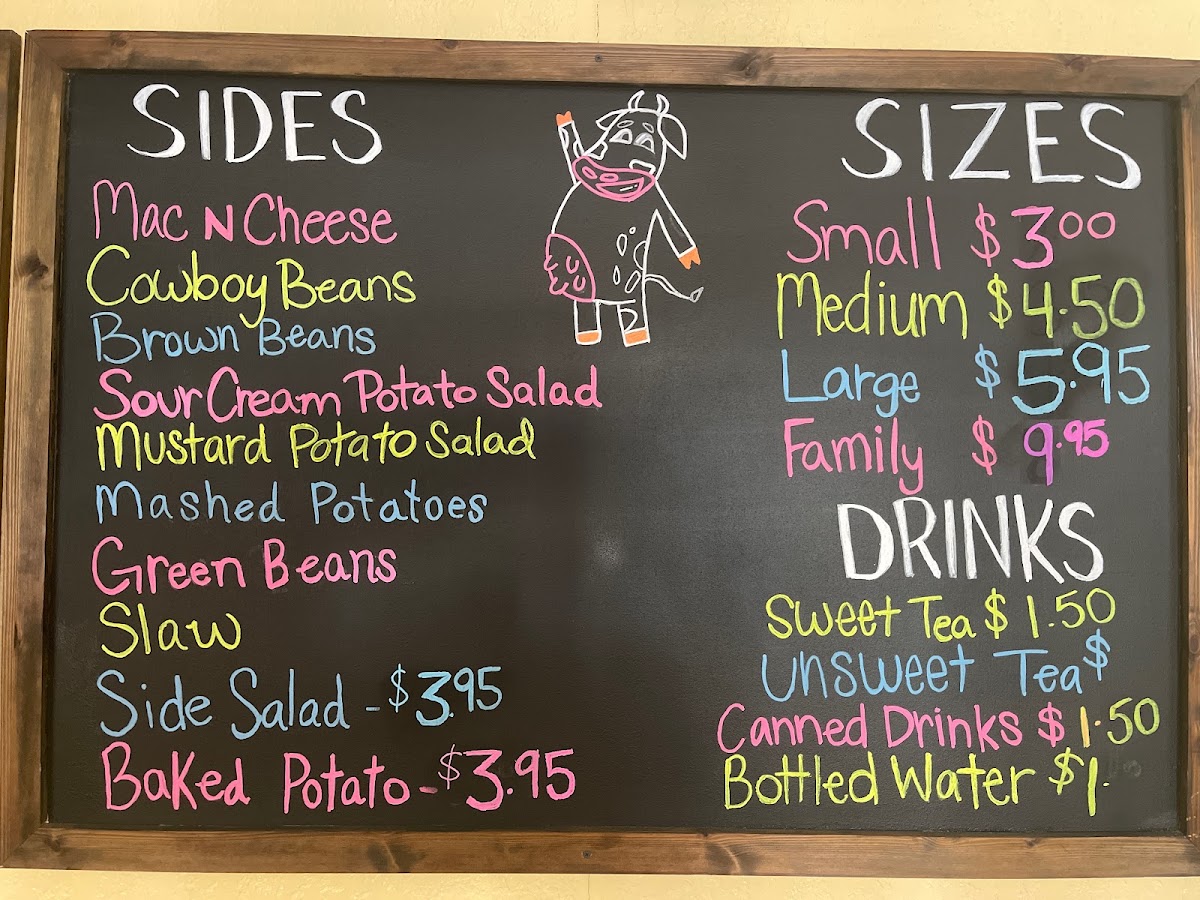 SIDES
Mac N Cheese
Cowboy Beans
Brown Beans
Sour Cream Potato Salad
Mustard Potato Salad
Mashed Potatoes
Green Beans
Slaw
Side Salad - $3.95
Baked Potato - $3.95
SIZES
Small $3.00
Medium $4.50
Large $5.95
Family $9.95
DRINKS
Sweet Tea $1.50
Unsweet Tea $
Canned Drinks $1.50
Bottled Water $1.